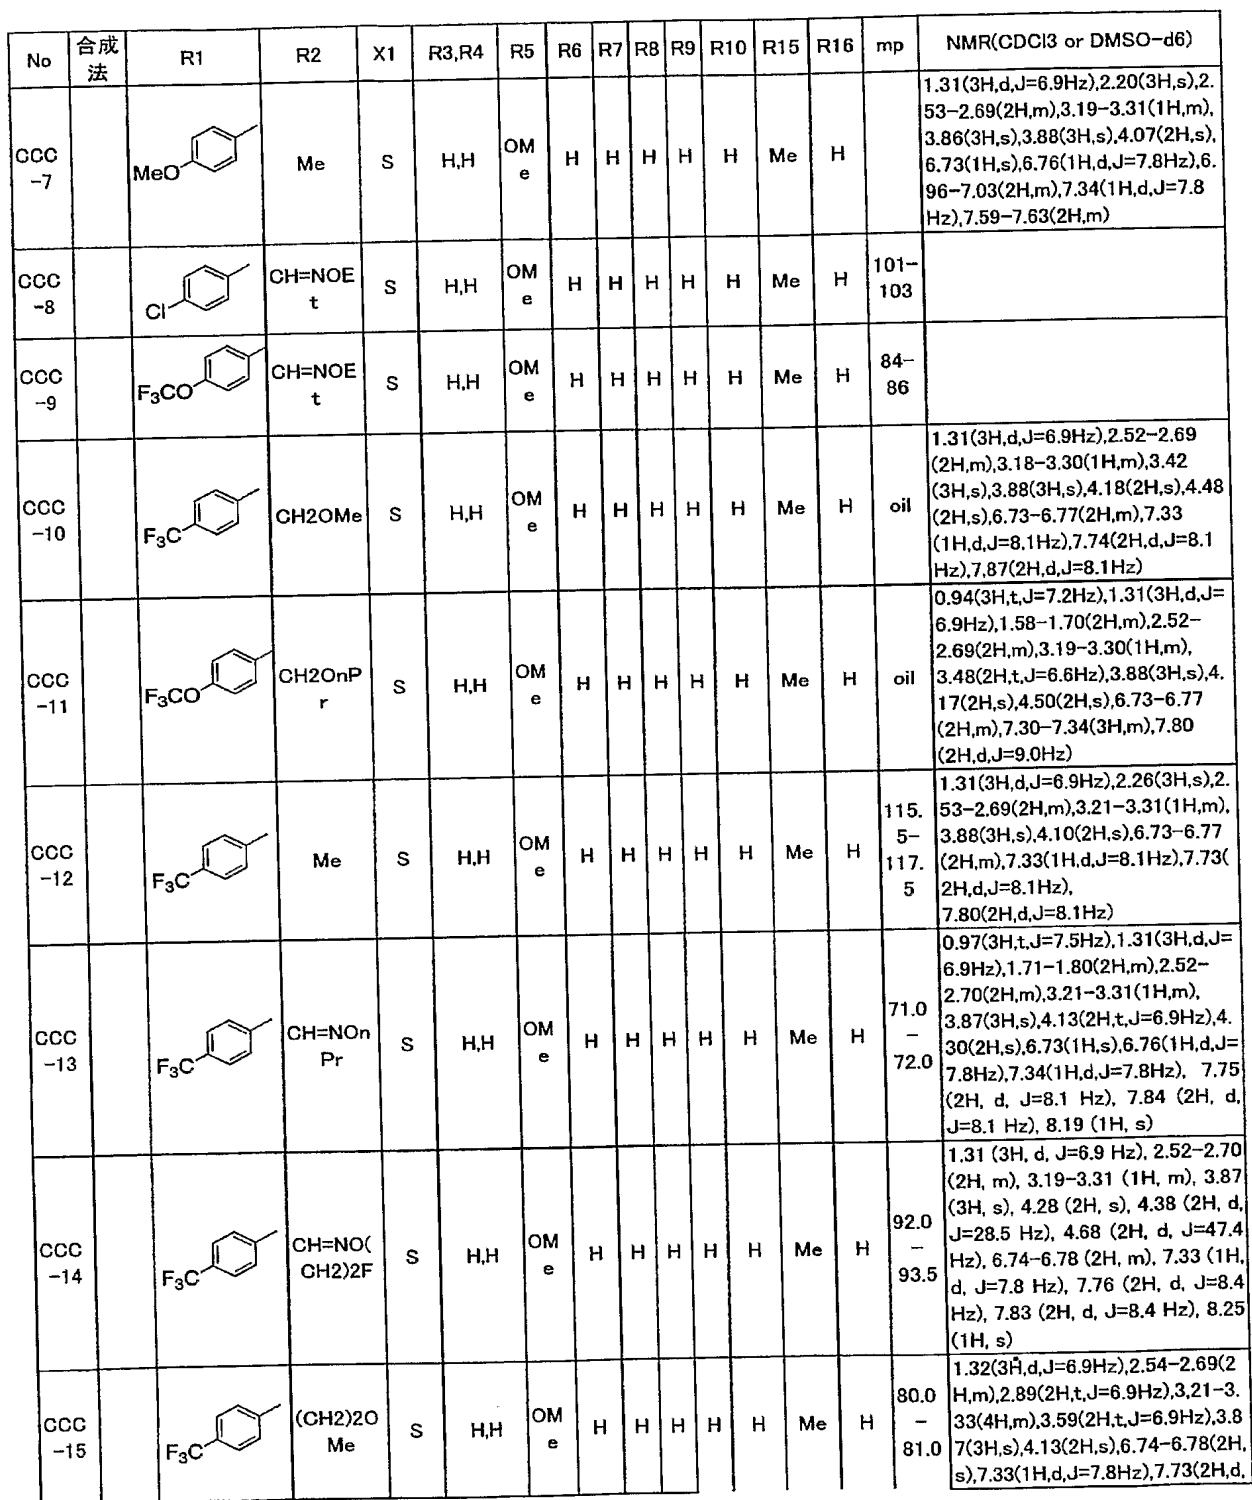 No 合成 R1 R2 X1 R3,R4 R5 R6 R7 R8 R9 R10 R15 R16 mp NMR(CDCl3 or DMSO-d6)
法
CCC
-7
MeO
Me
S
H,H
OM
e
H H H H H Me H
1.31(3H,d,J=6.9Hz),2.20(3H,s),2.
53-2.69(2H,m),3.19-3.31(1H,m),
3.86(3H,s),3.88(3H,s),4.07(2H,s),
6.73(1H,s),6.76(1H,d,J=7.8Hz),6.
96-7.03(2H,m),7.34(1H,d,J=7.8
Hz),7.59-7.63(2H,m)
CCC
-8
Cl
CH=NOE
t
S
H,H
OM
e
H H H H H Me H
101-
103
CCC
-9
F3CO
CH=NOE
t
S
H,H
OM
e
H H H H H Me H
84-
86
CCC
-10
F3C
CH2OMe
S
H,H
OM
e
H H H H H Me H
oil
1.31(3H,d,J=6.9Hz),2.52-2.69
(2H,m),3.18-3.30(1H,m),3.42
(3H,s),3.88(3H,s),4.18(2H,s),4.48
(2H,s),6.73-6.77(2H,m),7.33
(1H,d,J=8.1Hz),7.74(2H,d,J=8.1
Hz),7,87(2H,d,J=8.1Hz)
CCC
-11
F3CO
CH2OnP
r
S
H,H
OM
e
H H H H H Me H
oil
0.94(3H,t,J=7.2Hz),1.31(3H,d,J=
6.9Hz),1.58-1.70(2H,m),2.52-
2.69(2H,m),3.19-3.30(1H,m),
3.48(2H,t,J=6.6Hz),3.88(3H,s),4.
17(2H,s),4.50(2H,s),6.73-6.77
(2H,m),7.30-7.34(3H,m),7.80
(2H,d,J=9.0Hz)
CCC
-12
F3C
Me
S
H,H
OM
e
H H H H H Me H
115.
5-
117.
5
1.31(3H,d,J=6.9Hz),2.26(3H,s),2.
53-2.69(2H,m),3.21-3.31(1H,m),
3.88(3H,s),4.10(2H,s),6.73-6.77
(2H,m),7.33(1H,d,J=8.1Hz),7.73(
2H,d,J=8.1Hz),
7.80(2H,d,J=8.1Hz)
CCC
-13
F3C
CH=NOn
Pr
S
H,H
OM
e
H H H H H Me H
71.0
-
72.0
0.97(3H,t,J=7.5Hz),1.31(3H,d,J=
6.9Hz),1.71-1.80(2H,m),2.52-
2.70(2H,m),3.21-3.31(1H,m),
3.87(3H,s),4.13(2H,t,J=6.9Hz),4.
30(2H,s),6.73(1H,s),6.76(1H,d,J=
7.8Hz),7.34(1H,d,J=7.8Hz), 7.75
(2H, d, J=8.1 Hz), 7.84 (2H, d,
J=8.1 Hz), 8.19 (1H, s)
CCC
-14
F3C
CH=NO(
CH2)2F
S
H,H
OM
e
H H H H H Me H
92.0
-
93.5
1.31 (3H, d, J=6.9 Hz), 2.52-2.70
(2H, m), 3.19-3.31 (1H, m), 3.87
(3H, s), 4.28 (2H, s), 4.38 (2H, d,
J=28.5 Hz), 4.68 (2H, d, J=47.4
Hz), 6.74-6.78 (2H, m), 7.33 (1H,
d, J=7.8 Hz), 7.76 (2H, d, J=8.4
Hz), 7.83 (2H, d, J=8.4 Hz), 8.25
(1H, s)
CCC
-15
F3C
(CH2)2O
Me
S
H,H
OM
e
H H H H H Me H
80.0
-
81.0
1.32(3H,d,J=6.9Hz),2.54-2.69(2
H,m),2.89(2H,t,J=6.9Hz),3,21-3.
33(4H,m),3.59(2H,t,J=6.9Hz),3.8
7(3H,s),4.13(2H,s),6.74-6.78(2H,
s),7.33(1H,d,J=7.8Hz),7.73(2H,d,